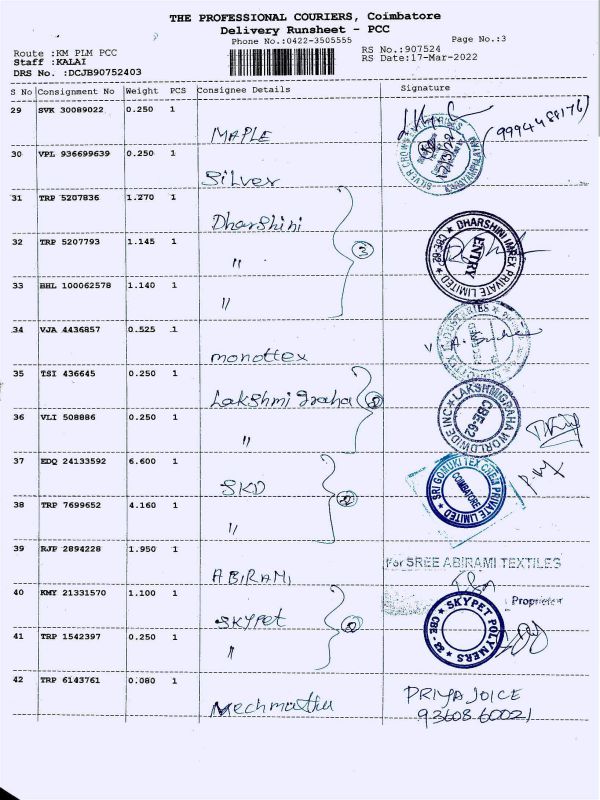 THE PROFESSIONAL COURIERS, Coimbatore
Delivery Runsheet - PCC
Phone No.:0422-3505555
Page No.:3
Route :KM PLM PCC
RS No.:907524
Staff :KALAI
RS Date:17-Mar-2022
DRS No. :DCJB90752403
S No Consignment No Weight PCS Consignee Details Signature
29 SVK 30089022 0.250 1
MAPLE
(9994488176)
30 VPL 936699639 0.250 1
Silver
SILVER CROWN
31 TRP 5207836 1.270 1
Dharshini
32 TRP 5207793 1.145 1
" 3
DHARSHINI IMPEX PRIVATE LIMITED
CBE-62
ENTRY
33 BHL 100062578 1.140 1
"
34 VJA 4436857 0.525 1
monottex
35 TSI 436645 0.250 1
Lakshmi graha
LAKSHMIGRAHA WORLDWIDE INC
CBE-62
36 VLI 508886 0.250 1
"
37 EDQ 24133592 6.600 1
SKD
SRI GOMUKI TEX CHEM PRIVATE LIMITED
COIMBATORE
38 TRP 7699652 4.160 1
"
39 RJP 2894228 1.950 1
ABIRAMI
For SREE ABIRAMI TEXTILES
Proprietor
40 KMY 21331570 1.100 1
Skypet
SKYPET POLYMERS
CBE - 33
41 TRP 1542397 0.250 1
"
42 TRP 6143761 0.080 1
Mechmathu
PRIYA JOICE
93608 60021